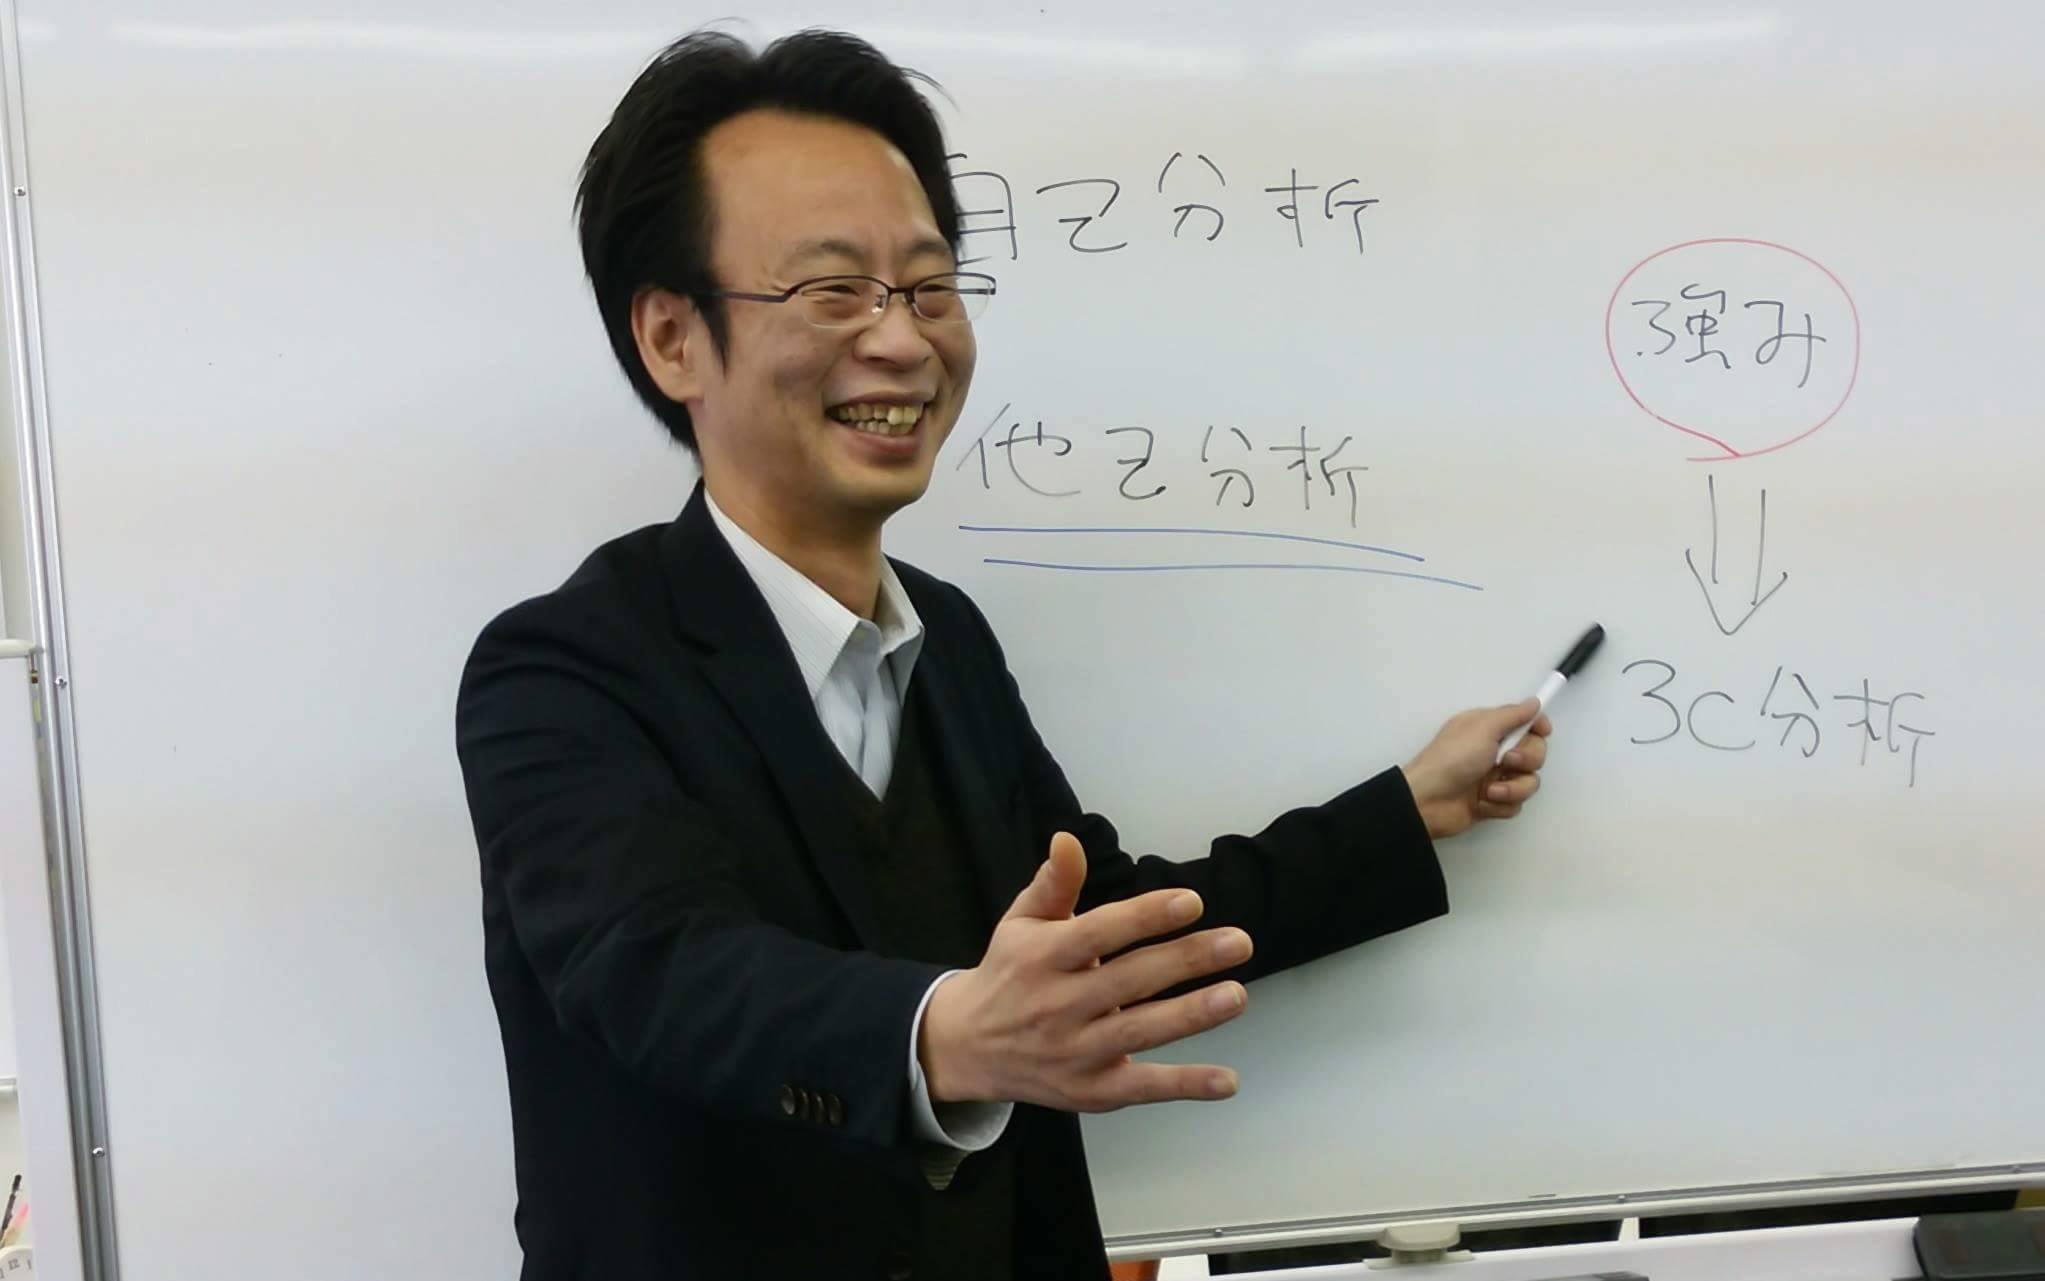 自己分析
他己分析
強み
3C分析
12